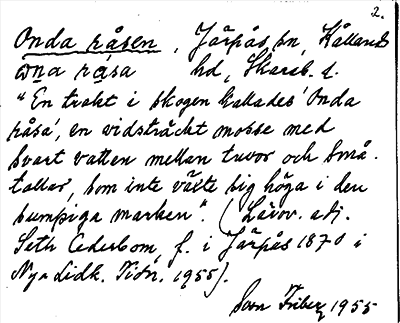 2.
Onda råsen, Järpås sn, Kållands
ωna råsa hd, Skarab. l.
"En trakt i skogen kallades 'Onda
råsa', en vidsträckt mosse med
svart vatten mellan tuvor och små-
tallar, som inte växte sig höga i den
sumpiga marken". (Lärov. adj.
Seth Cederbom, f. i Järpås 1870 i
Nya Lidk. Tidn. 1955).
Sven Friberg 1955